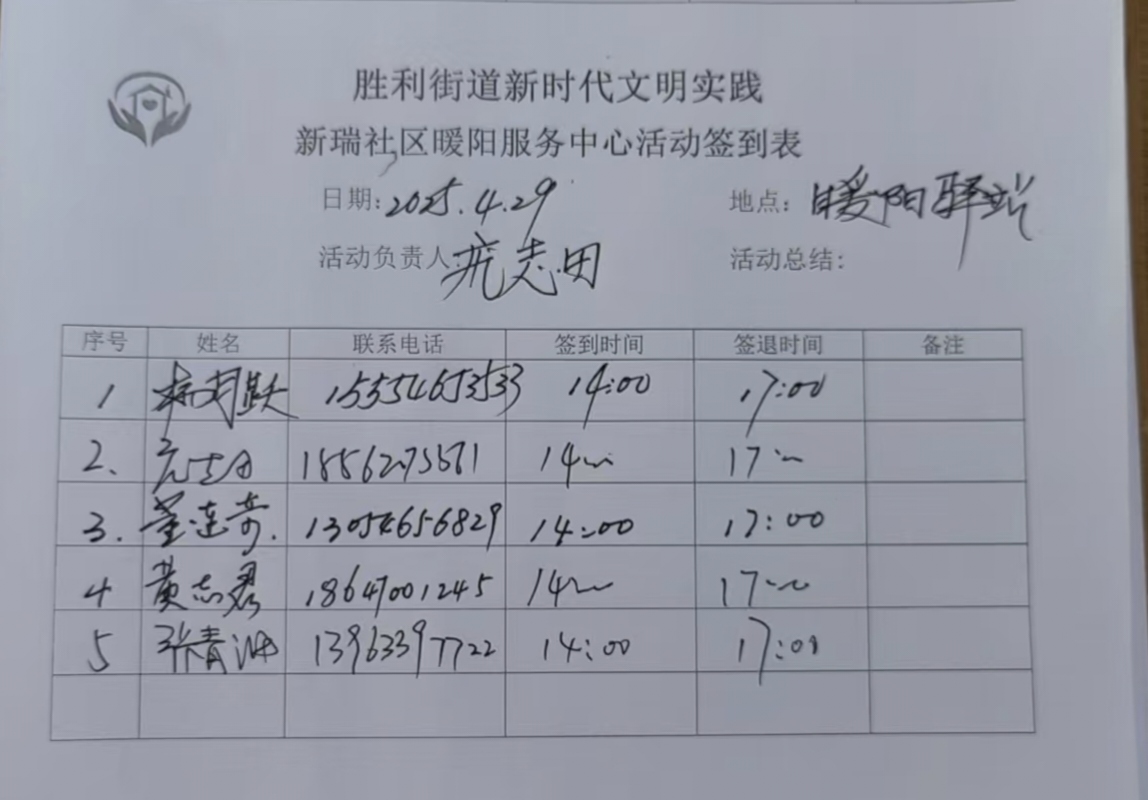 胜利街道新时代文明实践
新瑞社区暖阳服务中心活动签到表
日期:2025.4.29 地点:暖阳驿站
活动负责人:志田 活动总结:
序号 姓名 联系电话 签到时间 签退时间 备注
1 15554653533 14:00 17:00
2. 14 17
3. 董连奇. 13054656829 14:00 17:00
4 黄志君 18647001245 14 17
5 张青 13963397722 14:00 17:00